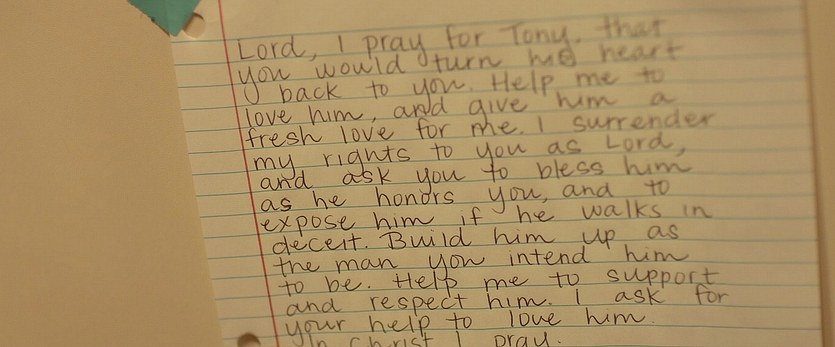 Lord, I pray for Tony. that
you would turn his heart
back to you. Help me to
love him, and give him a
fresh love for me. I surrender
my rights to you as Lord,
and ask you to bless him
as he honors you, and to
expose him if he walks in
deceit. Build him up as
the man you intend him
to be. Help me to support
and respect him. I ask for
your help to love him.
In Christ I pray.